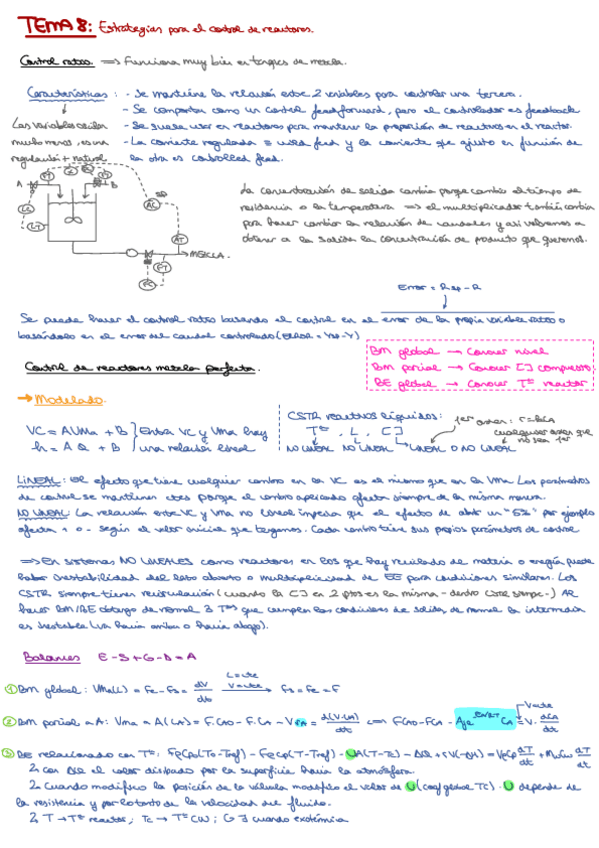 TEMA 8: Estrategias para el control de reactores.
Control ratio. ⟹ Funciona muy bien en tanques de mezcla.
Características: - Se mantiene la relación entre 2 variables para controlar una tercera.
- Se comporta como un control feedforward, pero el controlador es feedback
Las variables oscilan - Se suele usar en reactores para mantener la proporción de reactivos en el reactor.
mucho menos, es una - La corriente regulada = wild feed y la corriente que ajusto en función de
regulación + natural la otra es controlled feed.
A B
SP
FT FT
LC AC
La concentración de salida cambia porque cambia el tiempo de
residencia o la temperatura ⟹ el multiplicador también cambia
para hacer cambiar la relación de caudales y así volvemos a
obtener a la salida la concentración de producto que queremos.
LT AT
MEZCLA.
FT
FC
Error = Rsp - R
Se puede hacer el control ratio basando el control en el error de la propia variable ratio o
basándolo en el error del caudal controlado (Error = Ysp - Y)
BM global → Conocer nivel
BM parcial → Conocer [] compuesto
BE global → Conocer Tª reactor
Control de reactores mezcla perfecta.
→ Modelado.
VC = A·Vma + B } Entre VC y Vma hay
h = A Q + B una relación lineal
CSTR reactivos líquidos:
Tª , L , []
NO LINEAL NO LINEAL LINEAL O NO LINEAL
1er orden: r = kCA
cualquier orden que
no sea 1er
LINEAL: El efecto que tiene cualquier cambio en la VC es el mismo que en la Vma. Los parámetros
de control se mantienen ctes porque el cambio aplicado afecta siempre de la misma manera.
NO LINEAL: La relación entre VC y Vma no lineal implica que el efecto de abrir un "5%" por ejemplo
afecta + o - según el valor inicial que tengamos. Cada cambio tiene sus propios parámetros de control
⟹ En sistemas NO LINEALES como reactores en los que hay reciclado de materia o energía puede
haber inestabilidad del lazo abierto o multiplicidad de EE para condiciones similares. Los
CSTR siempre tienen recirculación (cuando la [] en 2 ptos es la misma - dentro CSTR siempre -) Al
hacer BM/BE obtengo de normal 3 Tªs que cumplen las condiciones de salida, de normal la intermedia
es inestable (va hacia arriba o hacia abajo).
Balances E - S + G - D = A
L = cte
① BM global: Vma(L) = Fe - Fs = dV/dt V = cte → Fs = Fe = F
② BM parcial a A: Vma = A(CA) = F·CA0 - F·CA - V·rA = d(V·CA)/dt ⟺ F·CA0 - F·CA - A0e^-E/RT CA = V· dCA/dt V = cte
③ BE relacionado con Tª: FeCp(T0 - Tref) - FeCp(T - Tref) - UA(T - Tc) - ΔQl + rV(-ΔH) = VρCp dT/dt + MwCw dT/dt
↳ con ΔQl el calor disipado por la superficie hacia la atmósfera.
↳ Cuando modifico la posición de la válvula modifico el valor de U (coef global Tc). U depende de
la resistencia y por lo tanto de la velocidad del fluido.
↳ T → Tª reactor; Tc → Tª CW; G ∃ cuando exotérmica